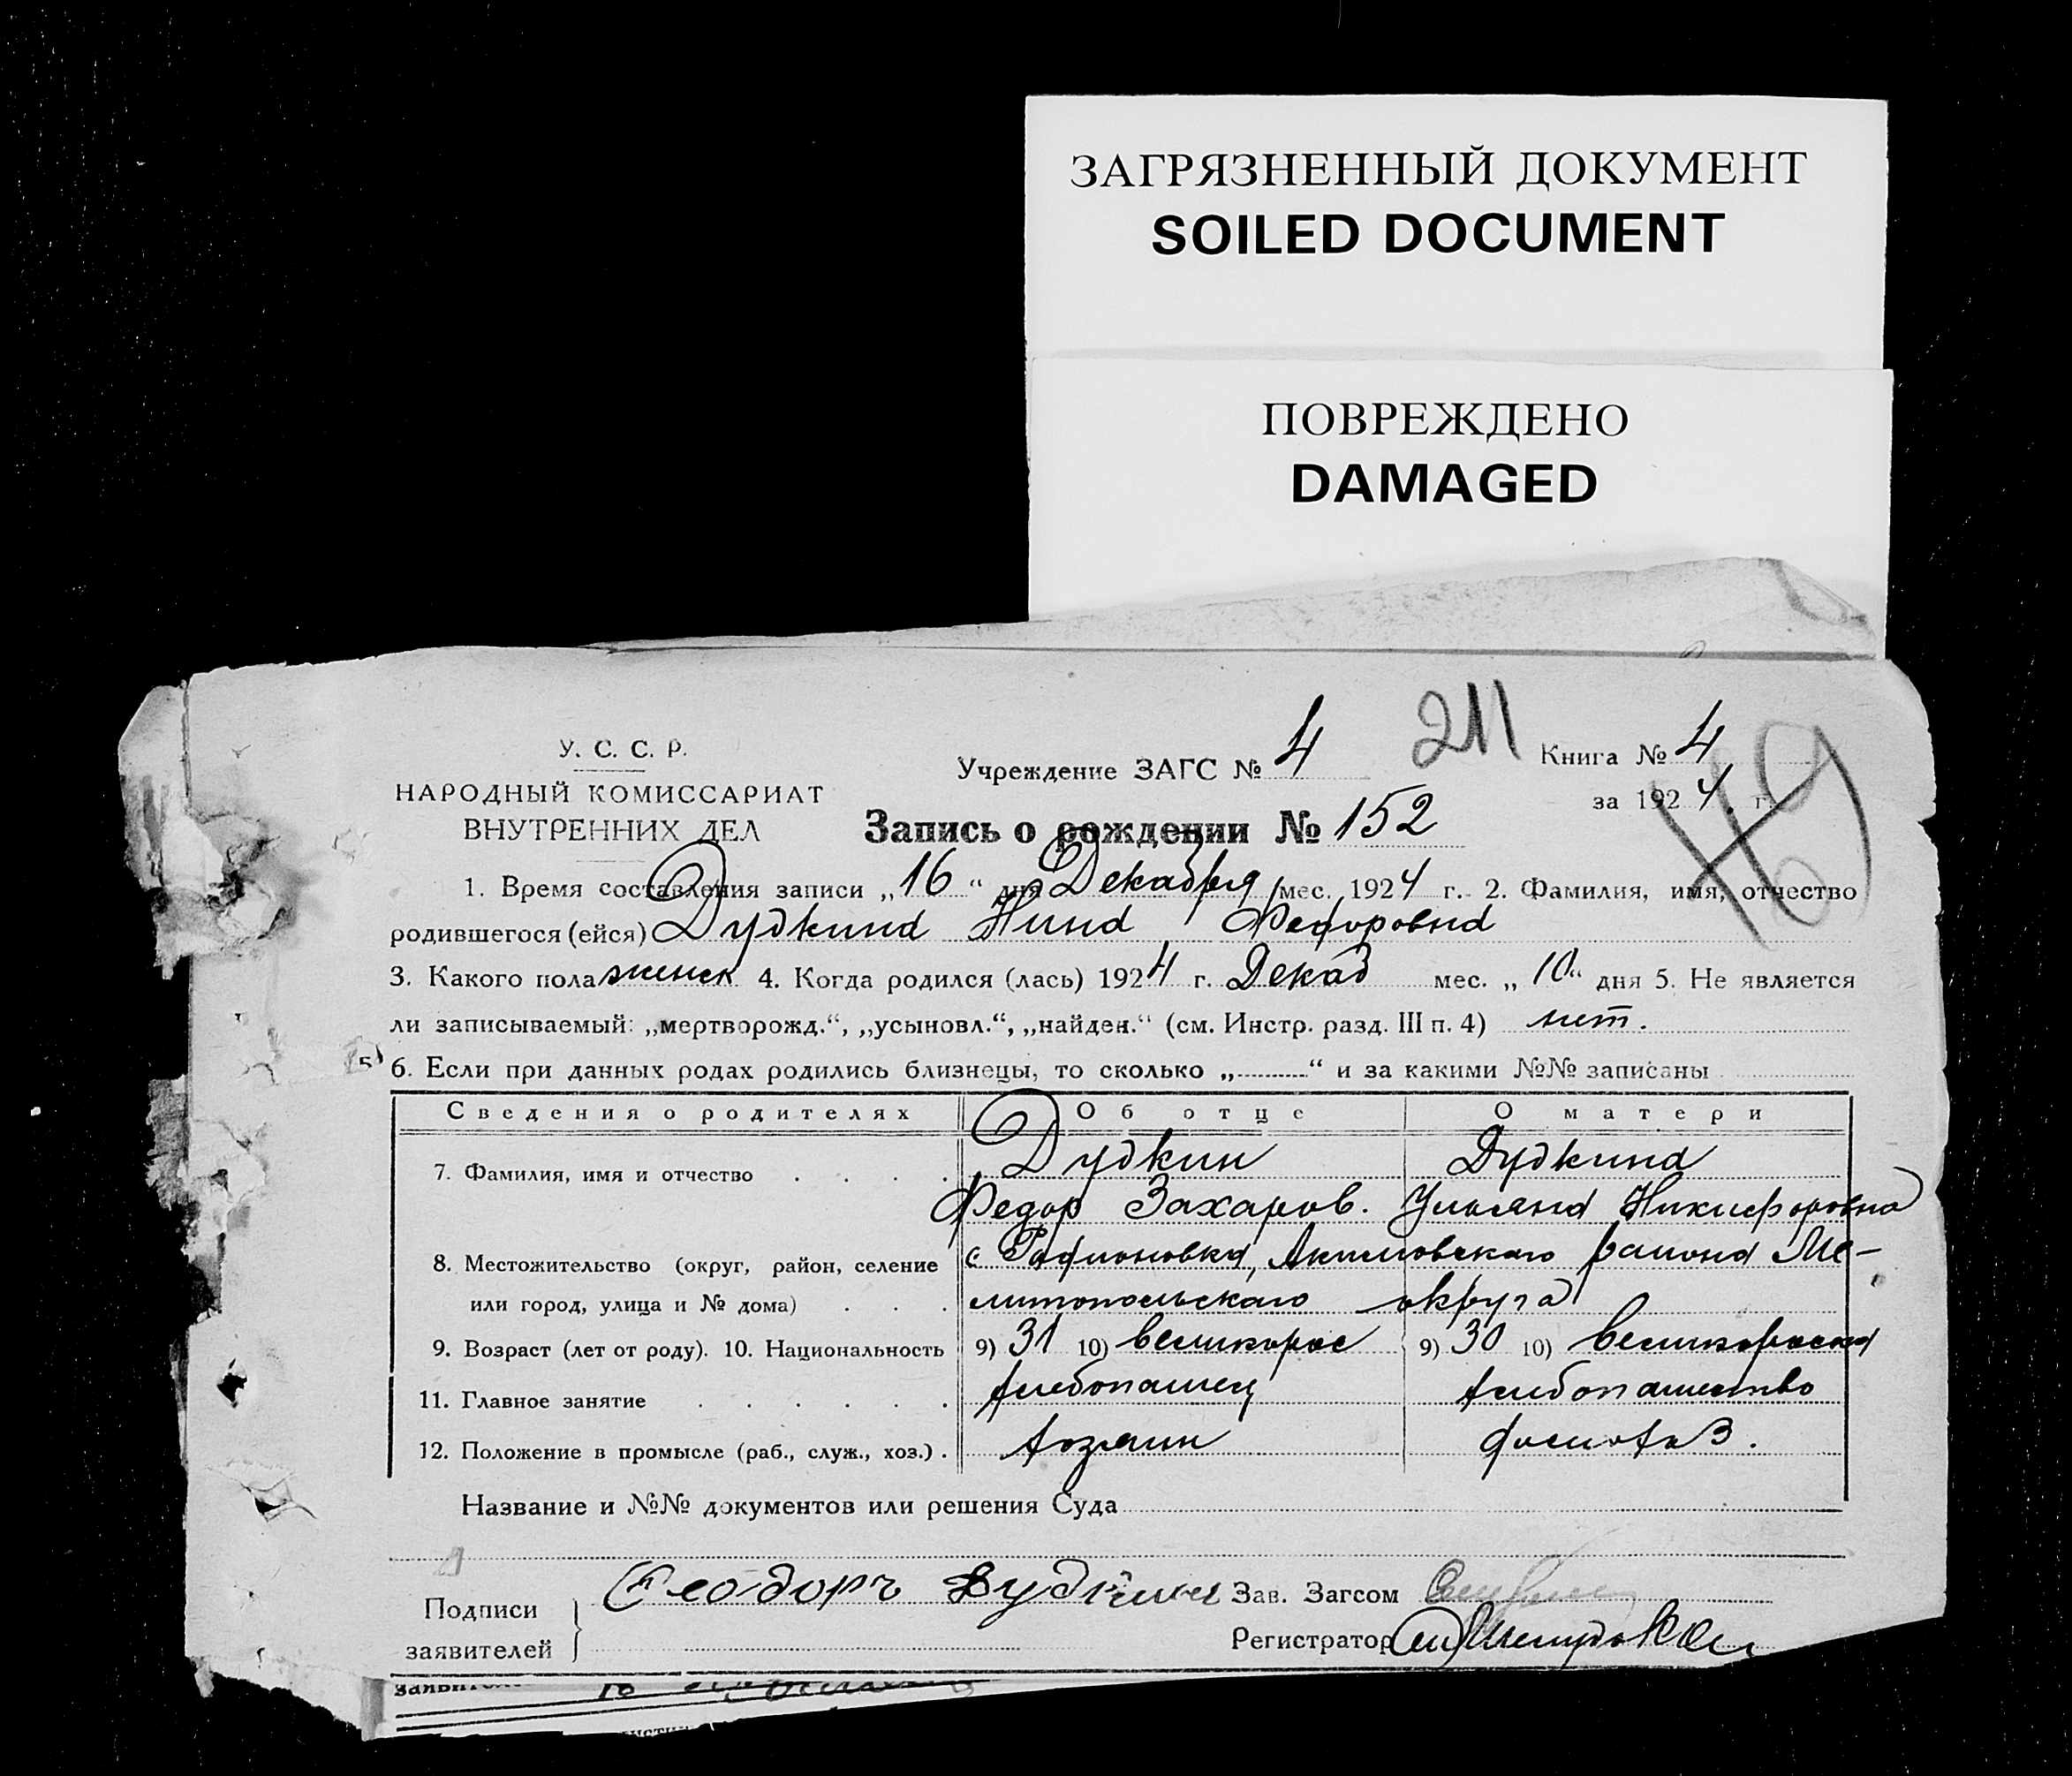 ЗАГРЯЗНЕННЫЙ ДОКУМЕНТ
SOILED DOCUMENT
ПОВРЕЖДЕНО
DAMAGED
У. С. С. Р.
НАРОДНЫЙ КОМИССАРИАТ
ВНУТРЕННИХ ДЕЛ
Учреждение ЗАГС № 4
211
Книга № 4
за 1924. г.
Запись о рождении № 152
1. Время составления записи „16“ дня Декабря мес. 1924 г. 2. Фамилия, имя, отчество
родившегося (ейся) Дудкина Нина Федоровна
3. Какого пола женск 4. Когда родился (лась) 1924 г. Декаб мес. „10“ дня 5. Не является
ли записываемый: „мертворожд.“, „усыновл.“, „найден.“ (см. Инстр. разд. III п. 4) нет.
6. Если при данных родах родились близнецы, то сколько „ “ и за какими №№ записаны
Сведения о родителях Об отце О матери
7. Фамилия, имя и отчество Дудкин Дудкина
Федор Захаров. Ульяна Никифоровна
8. Местожительство (округ, район, селение с Родионовка, Акимовскаго района Ме-
или город, улица и № дома) литопольскаго округа
9. Возраст (лет от роду). 10. Национальность 9) 31 10) великорос 9) 30 10) великороска
11. Главное занятие хлебопашец хлебопашество
12. Положение в промысле (раб., служ., хоз.) хозяин
Название и №№ документов или решения Суда
Подписи
заявителей
Феодоръ Дудкин
Зав. Загсом
Регистратор